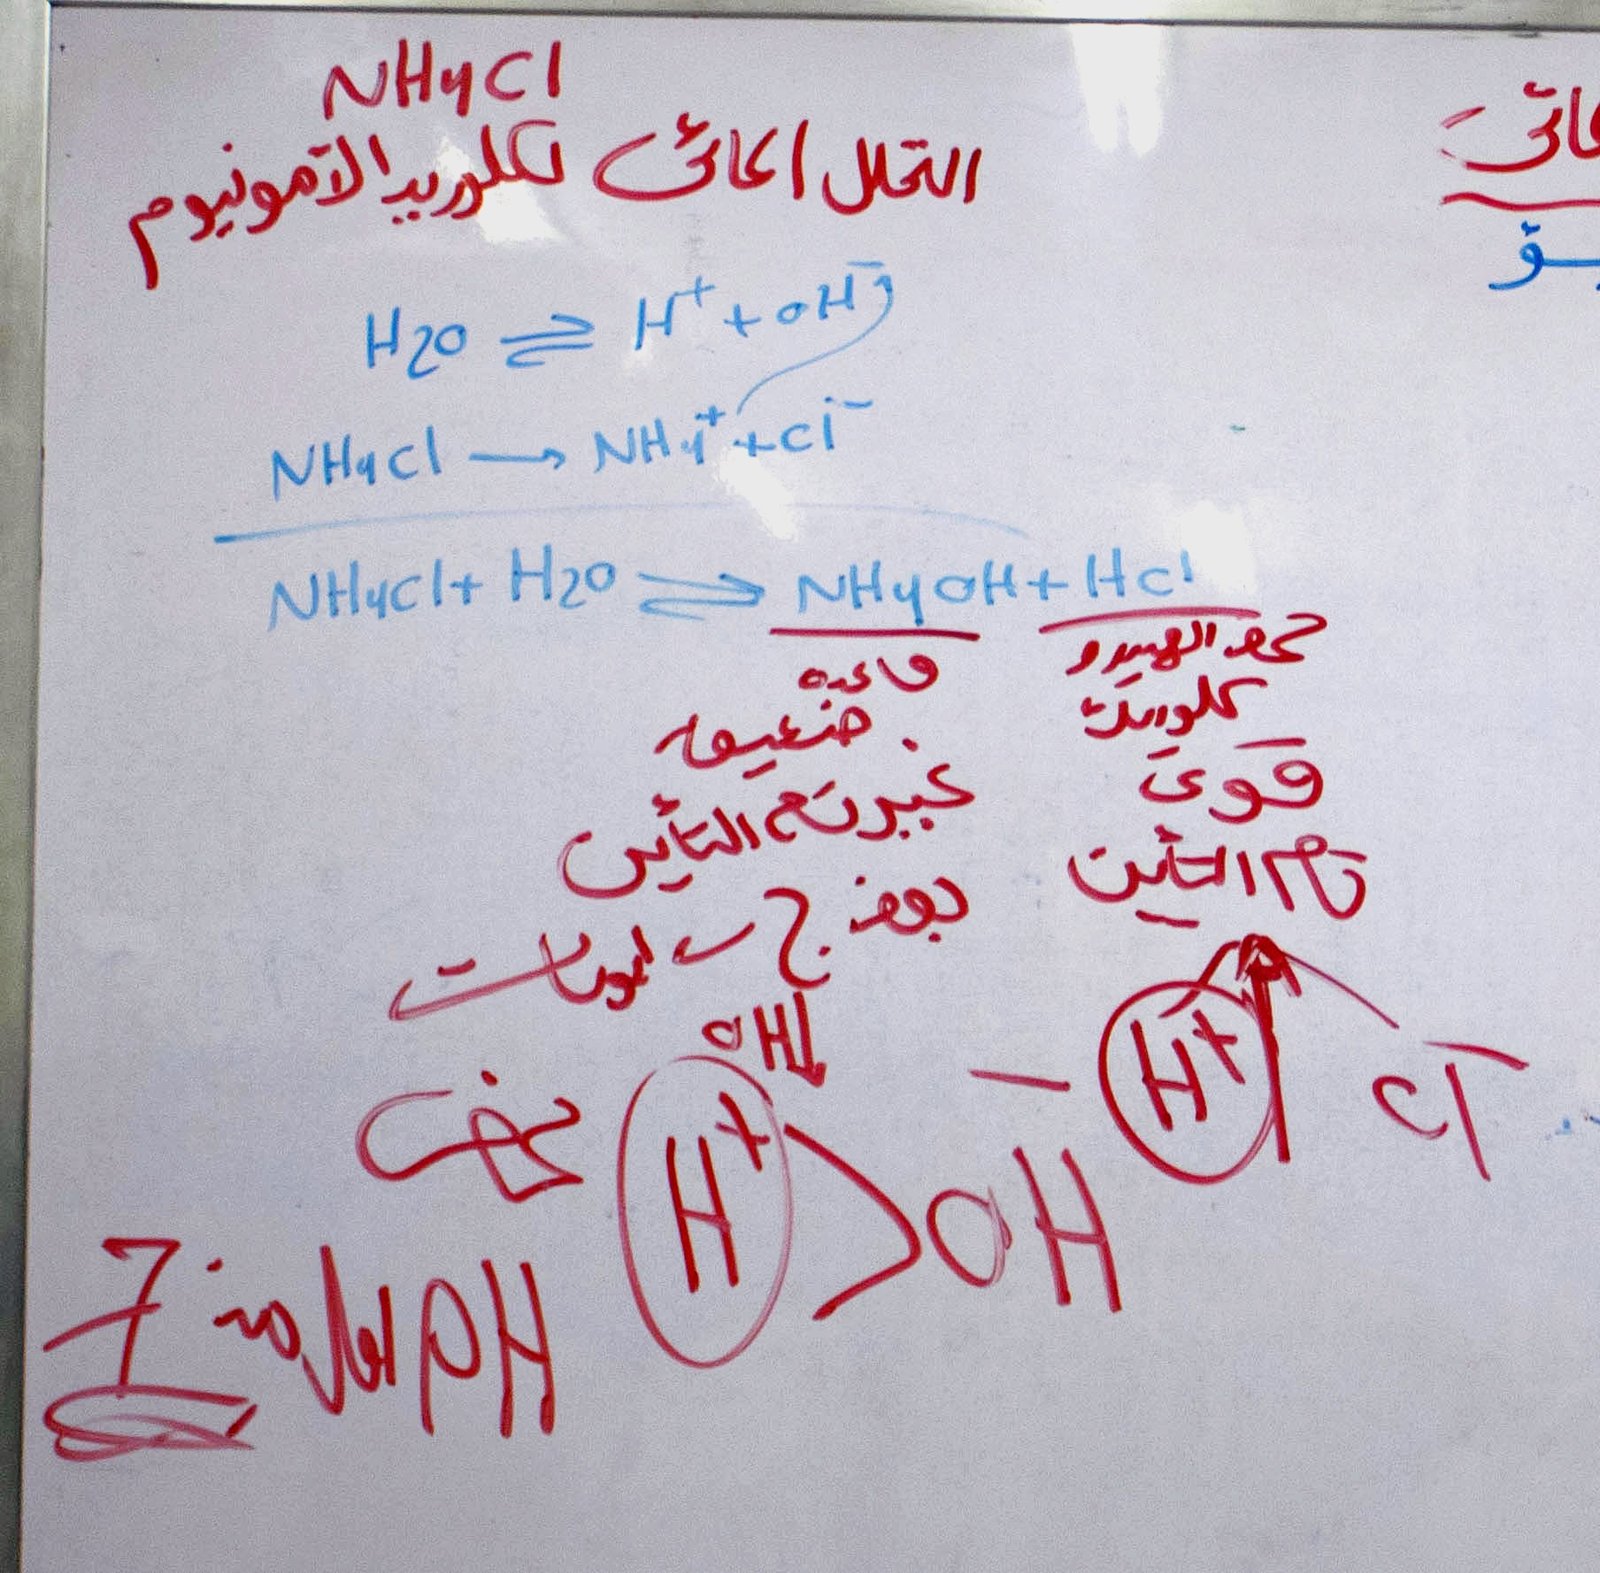 NH4Cl
التحلل المائى لكلوريد الآمونيوم
H2O ⇌ H+ + OH-
NH4Cl → NH4+ + Cl-
NH4Cl + H2O ⇌ NH4OH + HCl
قاعدة
ضعيفة
غير تام التأين
حمض الهيدرو
كلوريك
قوى
تام التأين
OH
H+ > OH-
H+ Cl-
pH اقل من 7
مائى